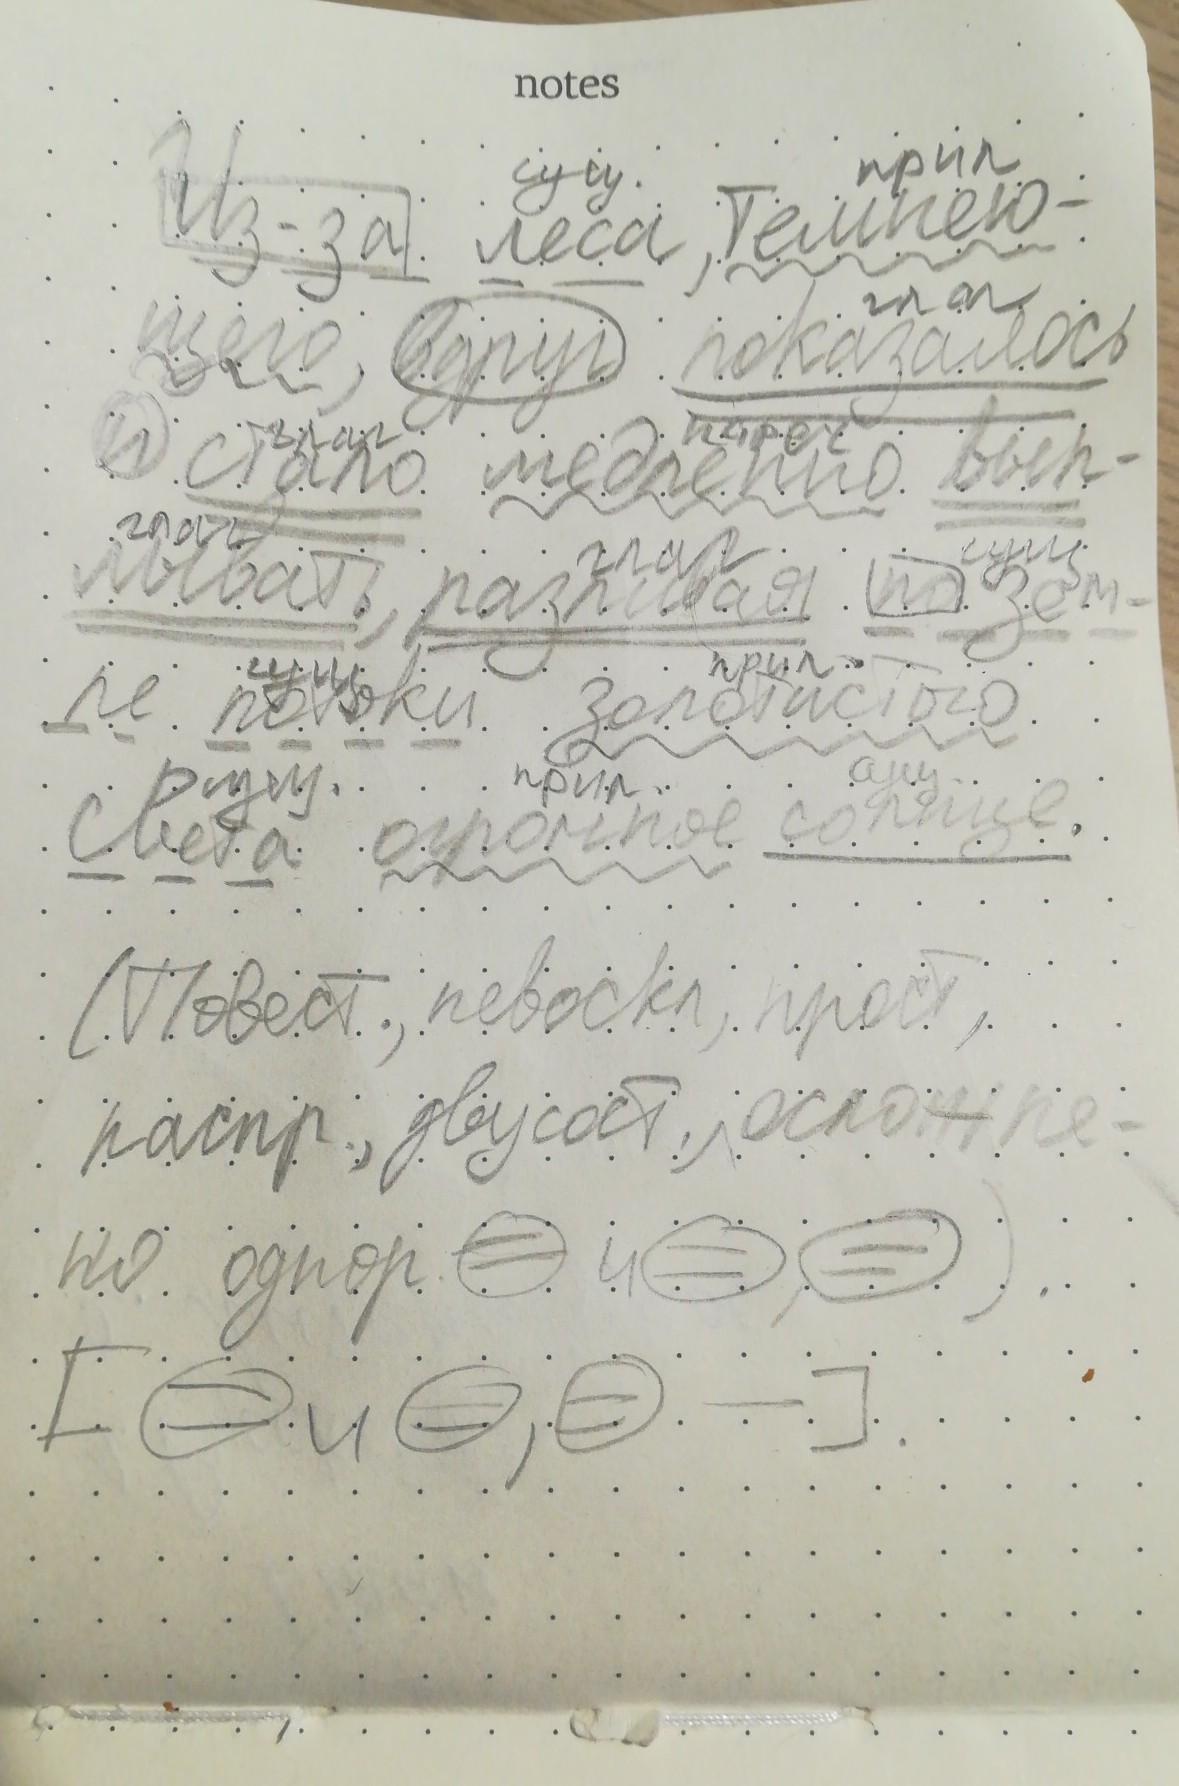 notes
сущ. прил
Из-за леса, темнею-
глаг
щего, вдруг показалось
глаг нареч
и стало медленно вып-
глаг глаг сущ
лывать, разливая по зем-
сущ прил.
ле потоки золотистого
сущ. прил. сущ.
света огромное солнце.
(Повест., невоскл, прост,
распр., двусост., осложне-
но однор. и , ).
[ и , — ].